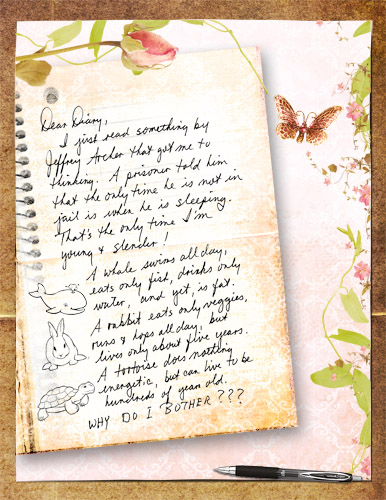 Dear Diary,
I just read something by
Jeffrey Archer that got me to
thinking. A prisoner told him
that the only time he is not in
jail is when he is sleeping.
That's the only time I'm
young & slender!
A whale swims all day,
eats only fish, drinks only
water, and yet, is fat.
A rabbit eats only veggies,
runs & hops all day, but
lives only about five years.
A tortoise does nothing
energetic, but can live to be
hundreds of years old.
WHY DO I BOTHER???